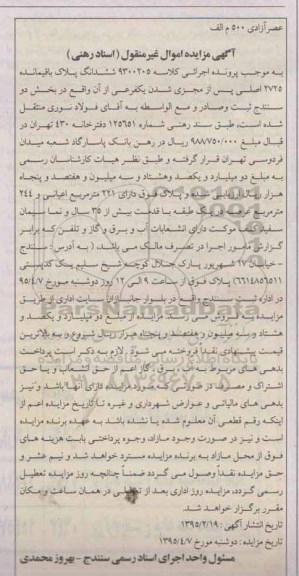 عصرآزادی ۵۰۰ م الف
آگهی مزایده اموال غیرمنقول (اسناد رهنی)
به موجب پرونده اجرائی کلاسه ۹۳۰۰۲۰۵ ششدانگ پلاک باقیمانده
۲۷۲۵ اصلی پس از مجزی شدن یکفرعی از آن واقع در بخش دو
سنندج ثبت وصادر و مع الواسطه به آقای فولاد نوری منتقل
شده است، طبق سند رهنی شماره ۱۲۵۶۵۱ دفترخانه ۴۳۰ تهران در
قبال مبلغ ۹۸۸۷۵۰۰۰۰ ریال در رهن بانک پاسارگاد شعبه میدان
فردوسی تهران قرار گرفته و طبق نظر هیات کارشناسان رسمی
به مبلغ دو میلیارد و یکصد وهشتاد و سه میلیون و هفتصد و پنجاه
هزار ریال ارزیابی شده و پلاک فوق دارای ۲۲۱ مترمربع اعیانی و ۲۴۴
مترمربع عرصه یک طبقه با قدمت بیش از ۳۵ سال و نما سیمان
سفید کف موکت دارای انشعابات آب و برق و گاز و تلفن که برابر
گزارش مامور اجرا در تصرف مالک می باشد، (به آدرس: سنندج
- خیابان ۱۷ شهریور پارک جلال کوچه شخ سلیم پینک کدپستی
۶۶۱۴۸۵۶۵۱۱) پلاک فوق از ساعت ۹ الی ۱۲ روز دوشنبه مورخ ۹۵/۴/۷
در اداره ثبت سنندج واقع در بلوار جانبازان سایت اداری از طریق
مزایده به فروش می رسد. مزایده از مبلغ دو میلیارد و یکصد و
هشتاد و سه میلیون و هفتصد و پنجاه هزار ریال شروع و به بالاترین
قیمت پیشنهادی نقداً فروخته می شود. لازم به ذکر است پرداخت
بدهی های مربوط به آب، برق، گاز اعم از حق انشعاب و یا حق
اشتراک و مصرف در صورتی که مورد مزایده دارای آنها باشد و نیز
بدهی های مالیاتی و عوارض شهرداری و غیره تا تاریخ مزایده اعم از
اینکه رقم قطعی آن معلوم شده یا نشده باشد به عهده برنده مزایده
است و نیز در صورت وجود مازاد، وجوه پرداختی بابت هزینه های
فوق از محل مازاد به برنده مزایده مسترد خواهد شد و نیم عشر و
حق مزایده نقداً وصول می گردد ضمناً چنانچه روز مزایده تعطیل
رسمی گردد، مزایده روز اداری بعد از تعطیلی در همان ساعت و مکان
مقرر برگزار خواهد شد.
تاریخ انتشار آگهی: ۱۳۹۵/۲/۱۹
تاریخ مزایده: دوشنبه مورخ ۱۳۹۵/۴/۷
مسئول واحد اجرای اسناد رسمی سنندج - بهروز محمدی